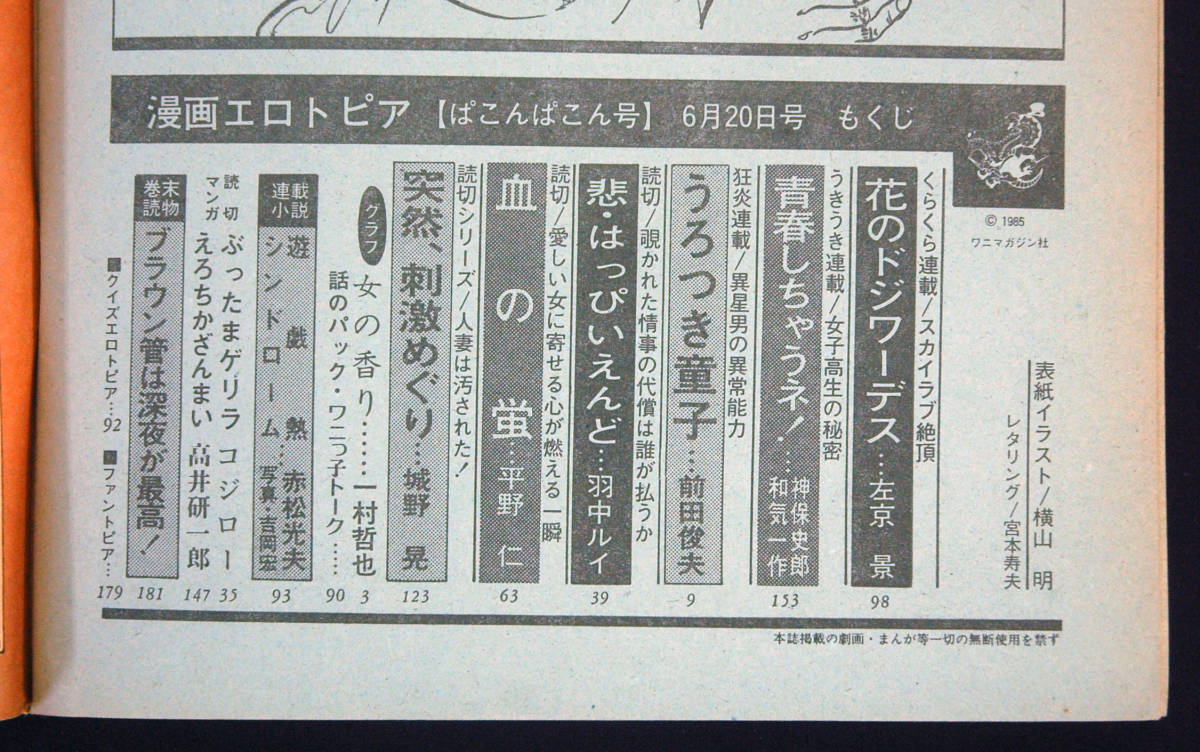 漫画エロトピア【ぱこんぱこん号】6月20日号 もくじ
© 1985
ワニマガジン社
表紙イラスト/横山 明
レタリング/宮本寿夫
くらくら連載/スカイラブ絶頂
花のドジワーデス…左京 景
98
うきうき連載/女子高生の秘密
青春しちゃうネ!…神保史郎
和気一作
153
狂炎連載/異星男の異常能力
うろつき童子…前田俊夫
9
読切/覗かれた情事の代償は誰が払うか
悲・はっぴいえんど…羽中ルイ
39
読切/愛しい女に寄せる心が燃える一瞬
血の蛍…平野 仁
63
読切シリーズ/人妻は汚された!
突然、刺激めぐり…城野 晃
123
グラフ
女の香り……一村哲也
3
話のパック・ワニっ子トーク……
90
連載小説
遊戯熱
シンドローム…赤松光夫
写真・吉岡宏
93
読切マンガ
ぶったまゲリラ コジロー
35
えろちかざんまい 高井研一郎
147
巻末読物
ブラウン管は深夜が最高!
181
■クイズエロトピア…92
■ファントピア…
179
本誌掲載の劇画・まんが等一切の無断使用を禁ず